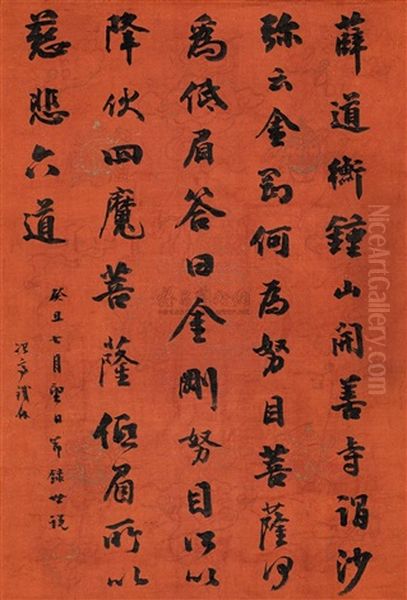 薛道衡鍾山開善寺謂沙
弥云金剛何為努目菩薩何
為低眉答曰金剛努目所以
降伏四魔菩薩低眉所以
慈悲六道
癸丑七月望日節錄世說
NiceArtGallery.com